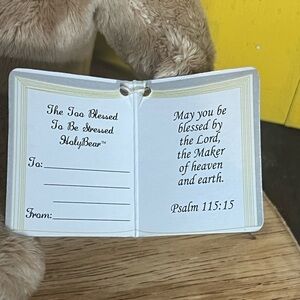 The Too Blessed
To Be Stressed
HolyBear™
To:
From:
May you be
blessed by
the Lord,
the Maker
of heaven
and earth.
Psalm 115:15